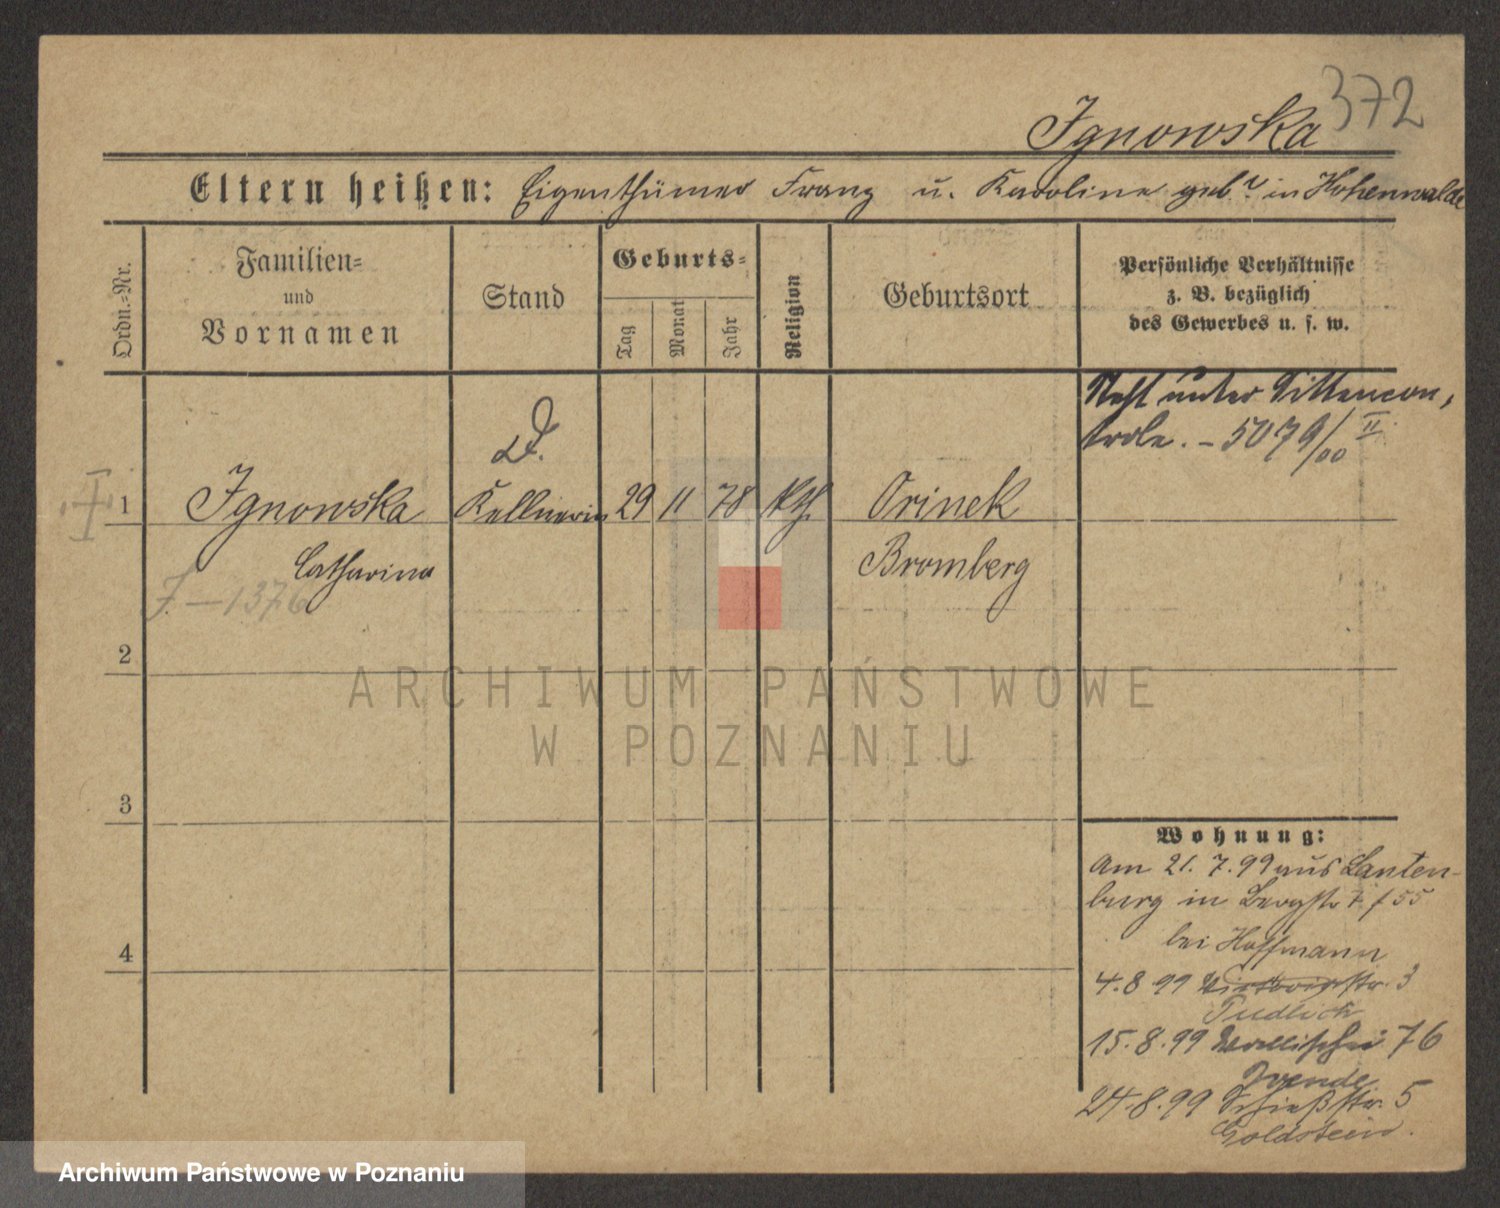 372
Ignowska
Eltern heißen: Eigenthümer Franz u. Karoline geb. in Hohenwalde
Ordn.-Nr.
Familien-
und
Vornamen
Stand
Geburts-
Tag
Monat
Jahr
Religion
Geburtsort
Persönliche Verhältnisse
z. B. bezüglich
des Gewerbes u. s. w.
Steht unter Sittencon,
trole. - 5079/00 II
D.
1 Ignowska Kellnerin 29 11 78 kth. Orinek
Catharina Bromberg
J. - 1376
2
3
4
Wohnung:
Am 21. 7. 99 aus Lauten-
burg in Bergstr 7 / 55
bei Hoffmann
4. 8 99 str. 3
Tudlich
15. 8. 99 Wallischei 76
24. 8. 99 Schießstr. 5
Goldstein.
ARCHIWUM PAŃSTWOWE
W POZNANIU
Archiwum Państwowe w Poznaniu